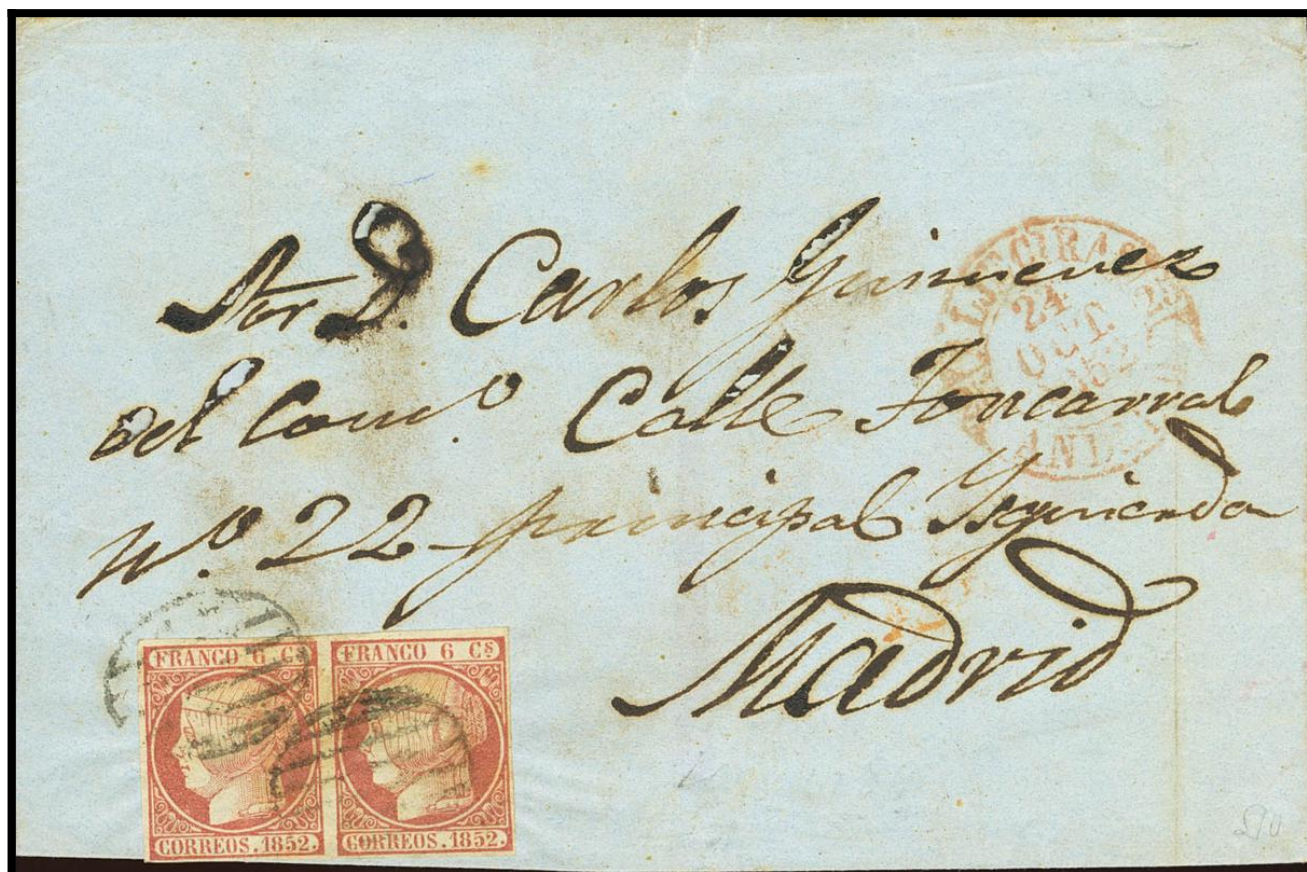 Sor D. Carlos Gimenez
del Comº. Calle Foncarral
Nº. 22 principal Isquierda
Madrid
ALGECIRAS 25
24
OCT.
1852
AND.
FRANCO 6 Cs
CORREOS. 1852.
FRANCO 6 Cs
CORREOS. 1852.